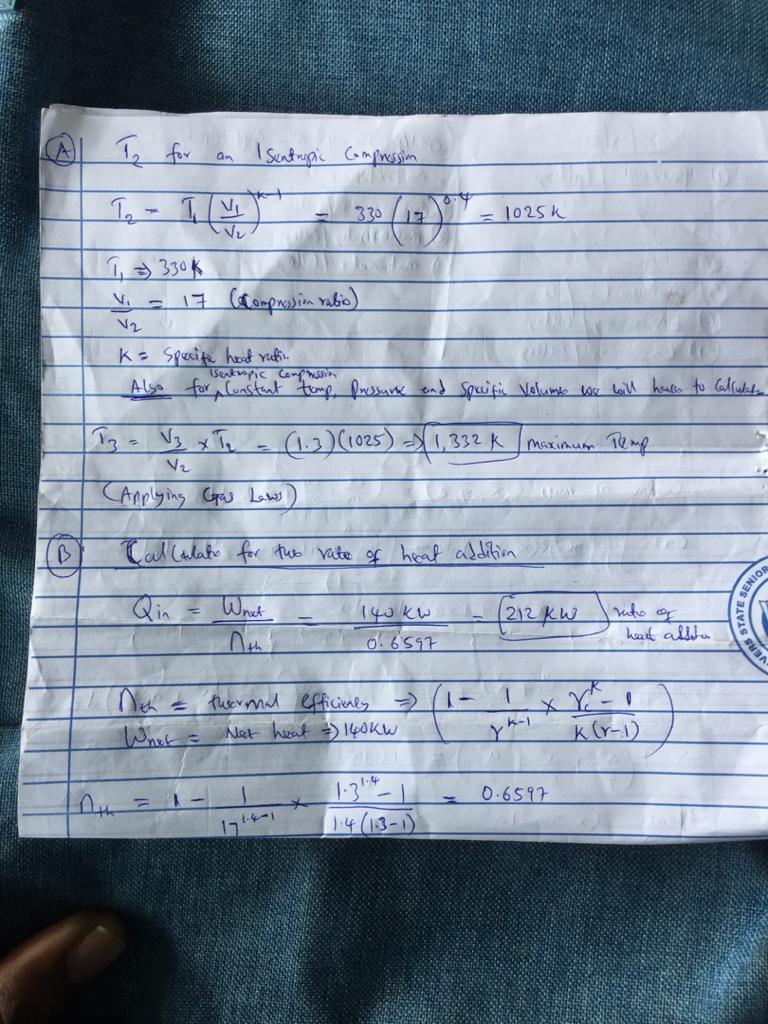 A T₂ for an Isentropic Compression
T₂ = T₁ (V₁/V₂)^(k-1) = 330 (17)^0.4 = 1025k
T₁ ⇒ 330K
V₁/V₂ = 17 (Compression ratio)
K = Specific heat ratio.
Isentropic Compression
Also for ^ Constant temp, Pressure and Specific Volume we will have to Calculate
T₃ = V₃/V₂ × T₂ = (1.3)(1025) ⇒ 1,332 K maximum Temp
(Applying Gas Laws)
B Calculate for the rate of heat addition
Qin = Wnet/nth = 140 KW/0.6597 = 212 KW rate of
heat
nth = thermal efficiency ⇒ (1 - 1/r^(k-1) × (rc^k - 1)/(K(r-1)))
Wnet = Net heat ⇒ 140KW
nth = 1 - 1/17^(1.4-1) × (1.3^1.4 - 1)/(1.4(1.3-1)) = 0.6597
STATE SENIOR